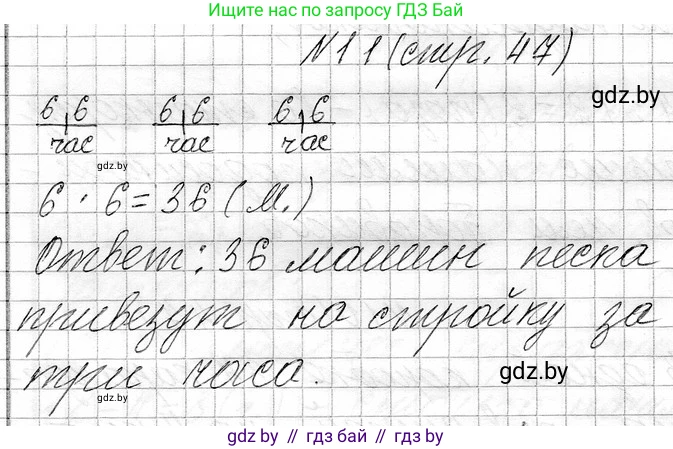 Ищите нас по запросу ГДЗ Бай
N11 (стр. 47)
gdz.by
6 6 6 6 6 6
час час час
gdz.by
6 · 6 = 36 (м.)
Ответ: 36 машин песка
привезут на стройку за
три часа.
gdz.by
gdz.by
gdz.by // гдз бай // gdz.by